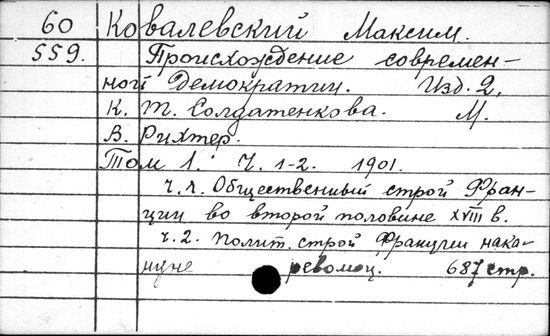 60 Ковалевский Максим.
559. Происхождение современ-
ной Демократии. Изд. 2,
К. Т. Солдатенкова. М.
В. Рихтер.
Том 1. Ч. 1-2. 1901.
ч. 1. Общественный строй Фран-
ции во второй половине XVIII в.
ч. 2. Полит. строй Франции нака-
нуне революц. 687 стр.